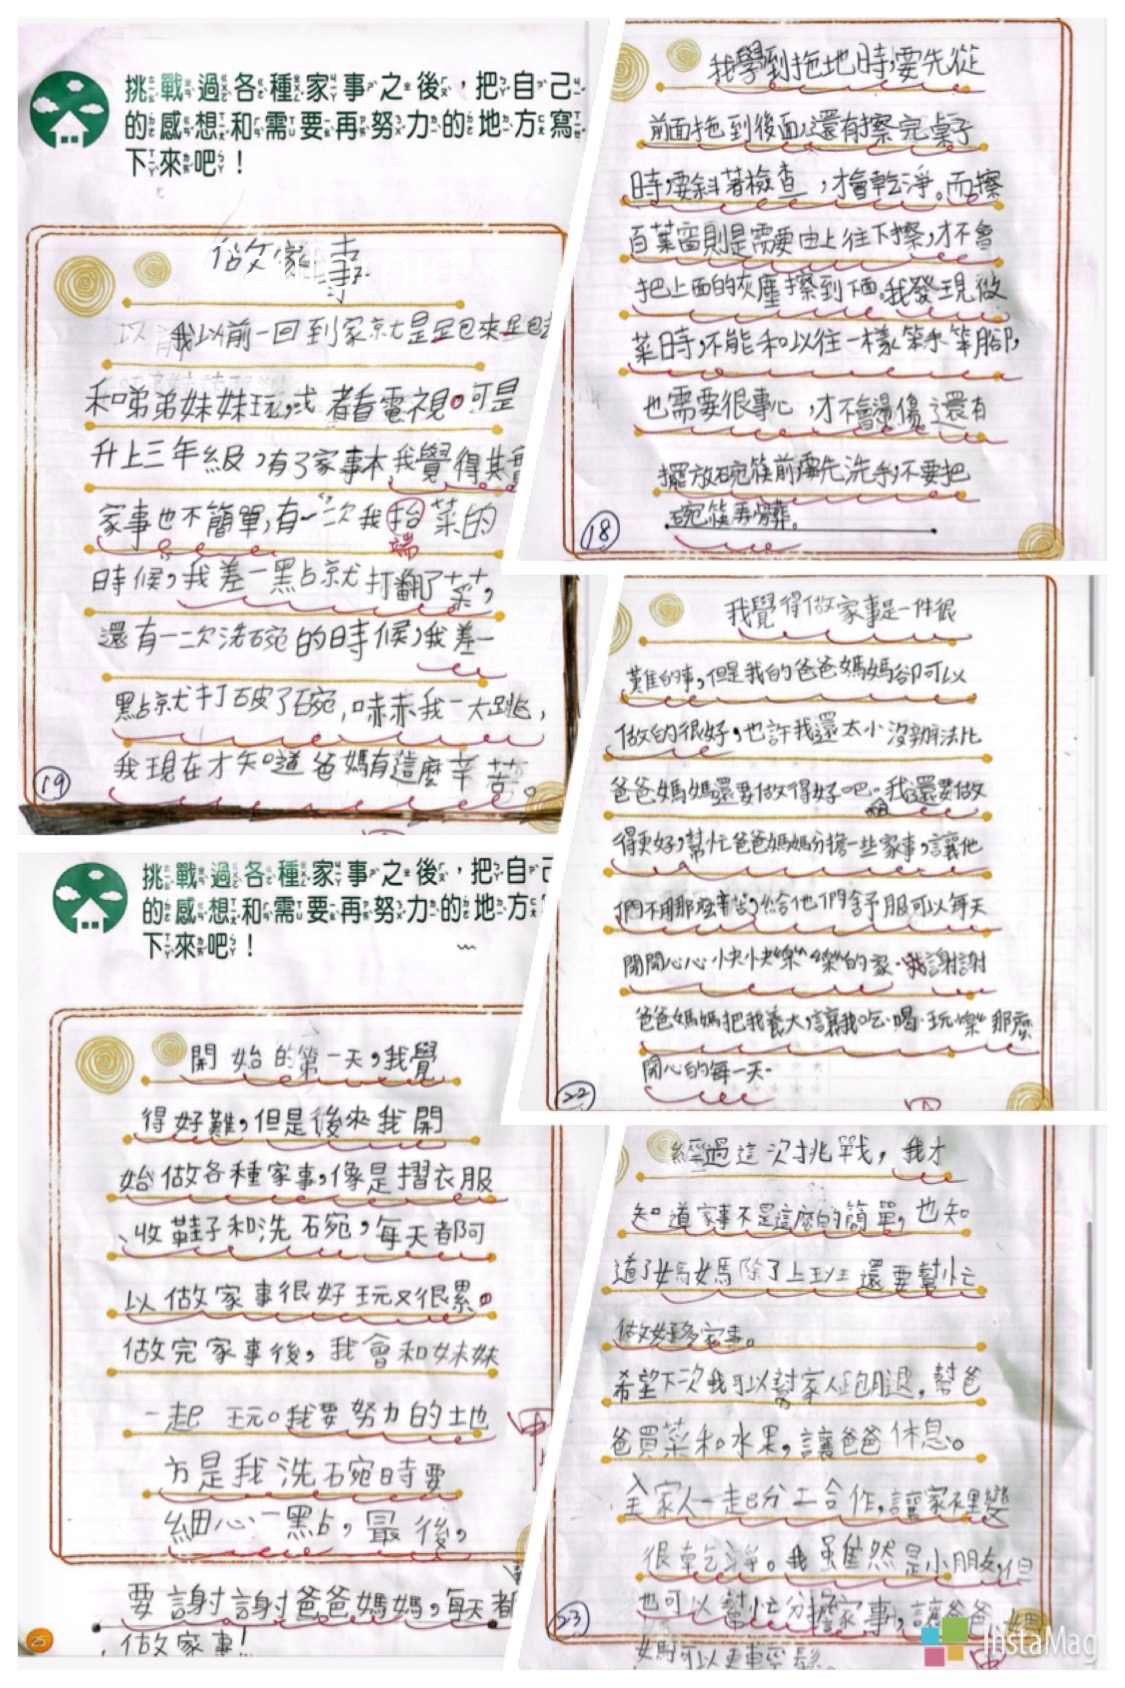 挑戰過各種家事之後，把自己
的感想和需要再努力的地方寫
下來吧！
做家事
我以前一回到家就是跑來跑去
和弟弟妹妹玩，或者看電視。可是
升上三年級，有了家事本我覺得其實
家事也不簡單，有一次我抬菜的
端
時候，我差一點就打翻了菜，
還有一次洗碗的時候，我差一
點就打破了碗，嚇我一大跳，
我現在才知道爸媽有這麼辛苦。
19
我學到拖地時，要先從
前面拖到後面，還有擦完桌子
時，要斜著檢查，才會乾淨。而擦
百葉窗則是需要由上往下擦，才不會
把上面的灰塵擦到下面。我發現做
菜時，不能和以往一樣笨手笨腳，
也需要很專心，才不會燙傷，還有
擺放碗筷前，要先洗手，不要把
碗筷弄髒。
18
我覺得做家事是一件很
難的事，但是我的爸爸媽媽卻可以
做的很好，也許我還太小沒辦法比
爸爸媽媽還要做得好吧。我還要做
得更好，幫忙爸爸媽媽分擔一些家事，讓他
們不用那麼辛苦，給他們舒服可以每天
開開心心快快樂樂的家，我謝謝
爸爸媽媽把我養大，讓我吃、喝、玩樂那麼
開心的每一天。
22
挑戰過各種家事之後，把自己
的感想和需要再努力的地方
下來吧！
開始的第一天，我覺
得好難，但是後來我開
始做各種家事，像是摺衣服
、收鞋子和洗碗，每天都可
以做家事很好玩又很累。
做完家事後，我會和妹妹
一起玩。我要努力的地
方是我洗碗時要
細心一點，最後，
要謝謝爸爸媽媽，每天都
做家事！
25
經過這次挑戰，我才
知道家事不是這麼的簡單，也知
道了媽媽除了上班還要幫忙
做好多家事。
希望下次我可以幫家人跑腿，幫爸
爸買菜和水果，讓爸爸休息。
全家人一起分工合作，讓家裡變
很乾淨。我雖然是小朋友，但
也可以幫忙分擔家事，讓爸爸媽
媽可以更輕鬆。
23
InstaMag